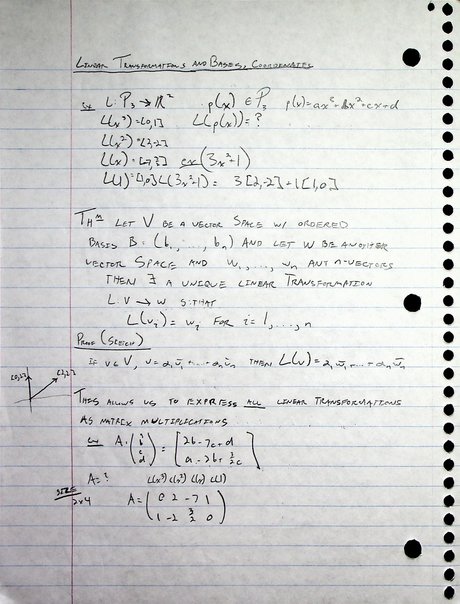 LINEAR TRANSFORMATIONS AND BASES, COORDINATES
ex L: P₃ → ℝ² p(x) ∈ P₃ p(x)=ax³+bx²+cx+d
L(x³)=[0,1] L(p(x))=?
L(x²)=[2,-2]
L(x)= ex (3x²+1)
L(1)=[1,0] L(3x²+1)= 3[2,-2]+1[1,0]
THᵐ LET V BE A VECTOR SPACE W/ ORDERED
BASIS B=(b₁,...,bₙ) AND LET W BE ANOTHER
VECTOR SPACE AND w₁,...,wₙ ANY n-VECTORS
THEN ∃ A UNIQUE LINEAR TRANSFORMATION
L:V→W S.THAT
L(vᵢ)=wᵢ FOR i=1,...,n
PROOF (SKETCH)
IF v∈V, THEN
THIS ALLOWS US TO EXPRESS ALL LINEAR TRANSFORMATIONS
AS MATRIX MULTIPLICATIONS
A =
A=? L(x³) L(x²) L(x) L(1)
SIZE
2x4
A= ( 0 2 -7 1
1 -2 3/2 0 )